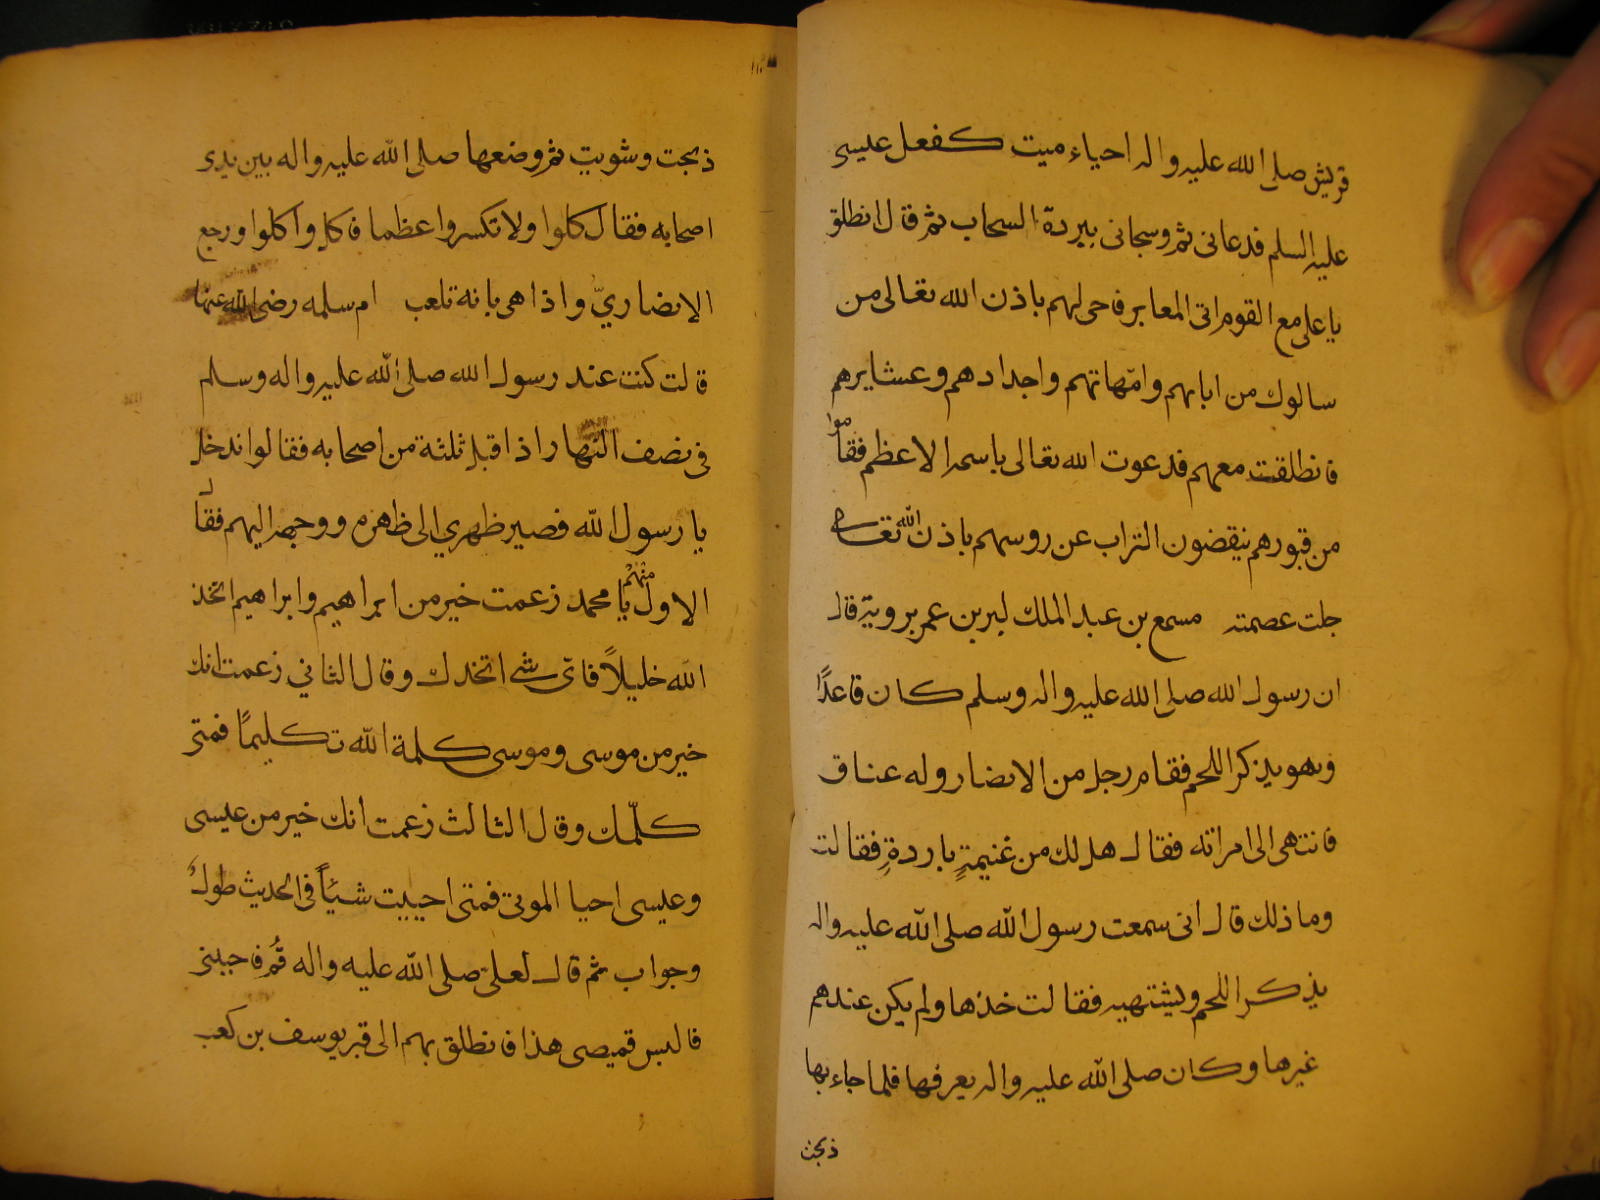 قريش صلى الله عليه واله احياء ميت كفعل عيسى
عليه السلم فدعانى ثم وسجانى ببردة السحاب ثم قال انطلق
يا على مع القوم اتى المعابر فاحى لهم باذن الله تعالى من
سالوك من ابائهم وامهاتهم واجدادهم وعشايرهم
فانطلقت معهم فدعوت الله تعالى باسمه الاعظم فقاموا
من قبورهم ينقضون التراب عن روسهم باذن الله تعالى
جلت عصمته مسمع بن عبد الملك قال
ان رسول الله صلى الله عليه واله وسلم كان قاعدًا
وهو يذكر اللحم فقام رجل من الانصار وله عناق
فانتهى الى امراته فقال هل لك من غنيمةٍ باردةٍ فقالت
وما ذلك قال انى سمعت رسول الله صلى الله عليه واله
يذكر اللحم ويشتهيه فقالت خذها ولم يكن عندهم
غيرها وكان صلى الله عليه واله يعرفها فلما جاء بها
ذبحت
ذبحت وشويت ثم وضعها صلى الله عليه واله بين يدى
اصحابه فقال كلوا ولا تكسروا عظما فاكل واكلوا ورجع
الانصاريّ واذا هى بانه تلعب ام سلمه رضى الله عنها
قالت كنت عند رسول الله صلى الله عليه واله وسلم
فى نصف النهار اذا قبل ثلثة من اصحابه فقالوا ندخل
يا رسول الله فصير ظهري الى ظاهره ووجهه اليهم فقال
الاول منهم يا محمد زعمت خير من ابراهيم وابراهيم اتخذ
الله خليلاً فاى شى اتخدك وقال الثاني زعمت انك
خير من موسى وموسى كلمة الله تكليمًا فمتى
كلّمك وقال الثالث زعمت انك خير من عيسى
وعيسى احيا الموتى فمتى احييت شيئاً فى الحديث طولٌ
وجواب ثم قال لعلى صلى الله عليه واله قُم فاجبنى
فالبس قميصى هذا فانطلق بهم الى قبر يوسف بن كعب